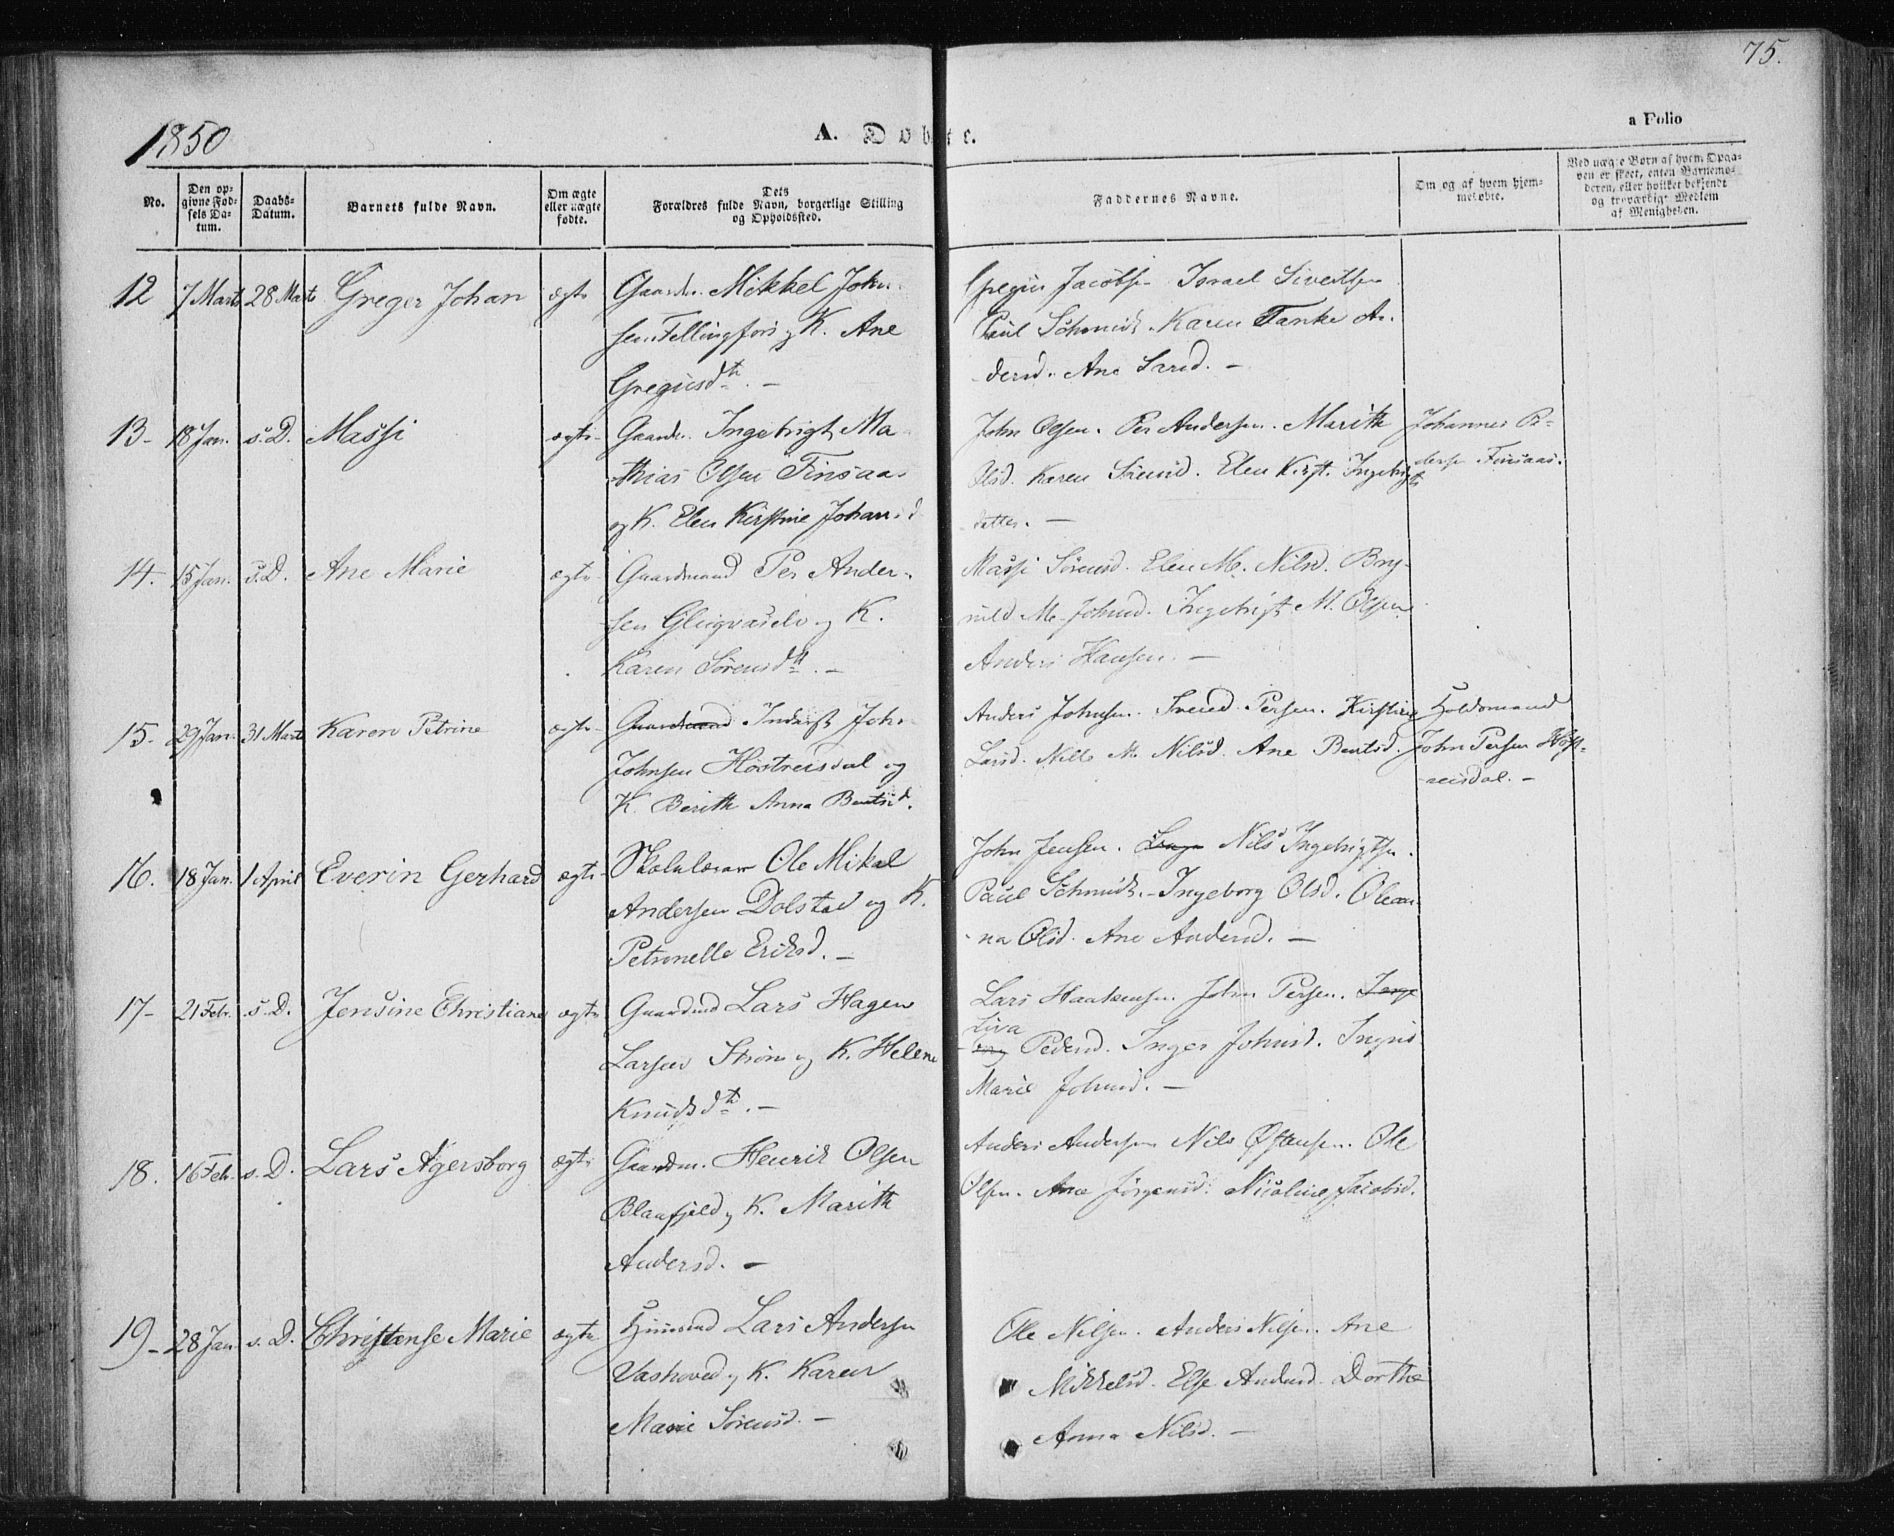 75.
1850
A. Døbte.
a Folio
No.
Den op-
givne Fød-
sels Da-
tum.
Daabs-
Datum.
Barnets fulde Navn.
Om ægte
eller uægte
fødte.
Dets
Forældres fulde Navn, borgerlige Stilling
og Opholdssted.
Faddernes Navne.
Om og af hvem hjem-
medøbte.
Ved uægte Børn af hvem Opga-
ven er skeet, enten Barnemo-
deren, eller hvilket bekjendt
og troværdigt Medlem
af Menigheden.
12 7 Marts 28 Marts Greger Johan ægte
Gaardm. Mikkel John-
sen Fellingfors og K. Ane
Gregusdtr. –
Gregus Jacobsen Israel Sivertsen
Paul Schmidt. Karen Tanke An-
dersd. Ane Larsd. –
13- 18 Jan. s. D. Massi ægte
Gaardm. Ingebrigt Ma-
thias Olsen Finsaas
og K. Elen Kirstine Johansd
John Olsen. Per Andersen. Marith
Olsd. Karen Sörensd. Elen Kirst. Ingebrigts
datter. –
Johannes Pe-
dersen Finsaas.
14. 15 Jan. s. D. Ane Marie ægte
Gaardmand Per Ander-
sen og K.
Karen Sörensdtr. –
Massi Sörensd. Elen M. Nilsd. Bry-
nild M. Johnsd. Ingebrigt M. Olsen
Anders Hansen. –
15- 29 Jan. 31 Marts Karen Petrine ægte
Gaardmand Inderst John
Johnsen Höstreisdal og
K. Berith Anna Bentsd.
Anders Johnsen. Svend Persen. Kirstine
Larsd. Nille M. Nilsd. Ane Bentsd.
Holdsmand
John Persen Höst-
reisdal. –
16. 18 Jan. 1 April Everin Gerhard ægte
Skolelærer Ole Mikal
Andersen Dolstad og K.
Petronelle Eriksd. –
John Jensen. Nils Ingebrigtsen.
Paul Schmidt. Ingeborg Olsd. Olean-
na Olsd. Ane Andersd. –
17- 21 Febr. s. D. Jensine Christiane ægte
Gaardmd Lars Hagen
Larsen Ström og K. Helene
Knudsdtr. –
Lars Haakensen. John Persen. Inge
Siva
borg Pedersd. Inger Johnsd. Ingris
Marie Johnsd. –
18. 16 Feb. s. D. Lars Agersborg ægte
Gaardm. Henrik Olsen
Blaafjeld og K. Marith
Andersd. –
Anders Andersen Nils Östensen. Ole
Olsen. Ane Jörgensd. Nicoline Jacobsd.
19- 28 Jan. s. D. Christense Marie ægte
Lars Andersen
Vashoved og K. Karen
Marie Sörensd. –
Ole Nilsen. Anders Nilsen. Ane
Mikkelsd. Else Andersd. Dorthe
Anna Nilsd. –